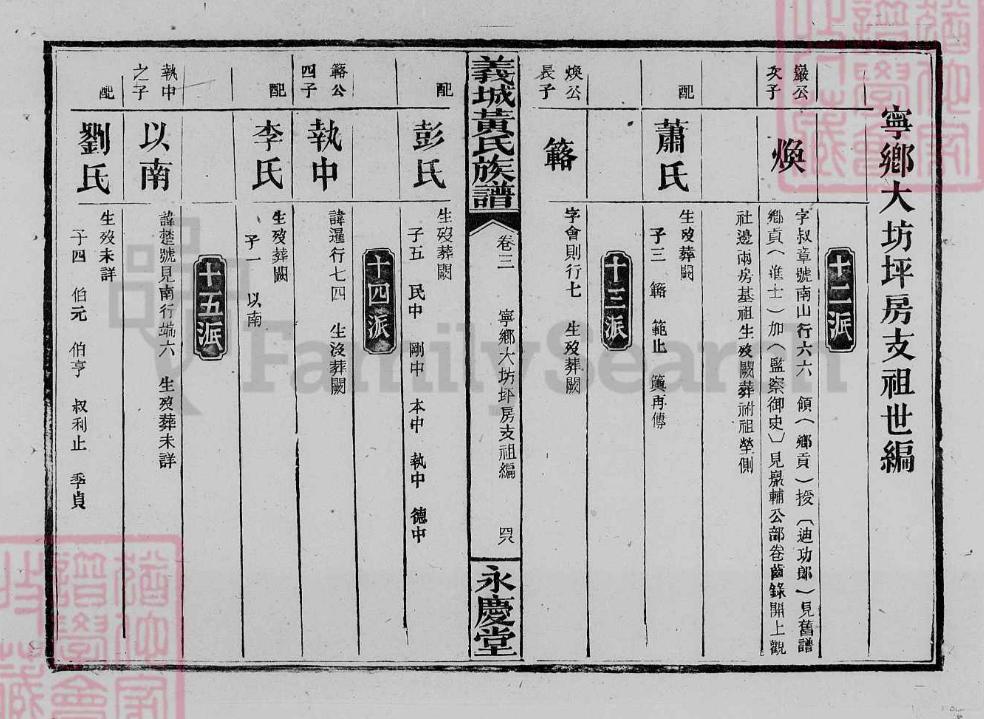 寧鄉大坊坪房支祖世編
十二派
巖公次子
煥
字叔章號南山行六六 領（鄉貢）授〔迪功郎）見舊譜
鄉貢（進士）加（監察御史〕見嚴輔公部卷齒錄開上觀
社邊兩房基祖生歿闕葬祔祖塋側
配
蕭氏
生歿葬闕
子三 簵 範止 簨再傳
十三派
煥公長子
簵
字會則行七 生歿葬闕
義城黃氏族譜
卷三 寧鄉大坊坪房支祖編
永慶堂
配
彭氏
生歿葬闕
子五 民中 剛中 本中 執中 德中
十四派
簵公四子
執中
諱暹行七四 生沒葬闕
配
李氏
生歿葬闕
子一 以南
十五派
執中之子
以南
諱楚號見南行端六 生歿葬未詳
配
劉氏
生歿未詳
子四 伯元 伯亨 叔利止 季貞
FamilySearch